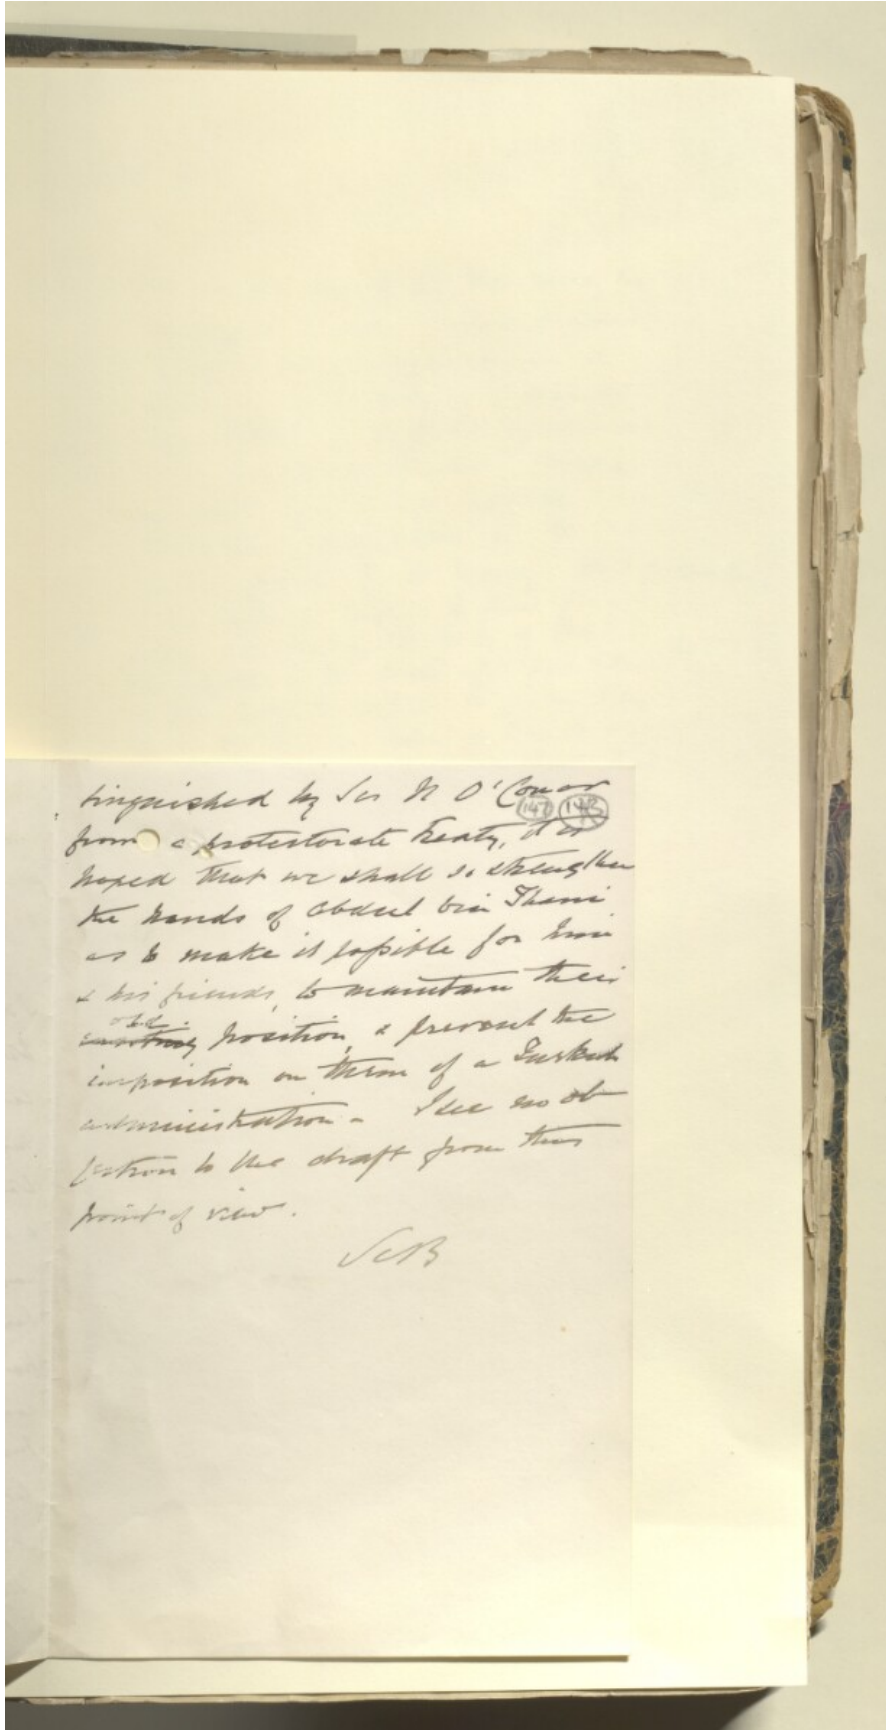 tinguished by Sir N O'Conor
147 148
from a protectorate treaty, it is
hoped that we shall so strengthen
the hands of Abdul bin Thani
as to make it possible for him
& his friends, to maintain their
old
existing position, & prevent the
imposition on them of a Turkish
administration - I see no ob
jection to the draft from this
point of view.